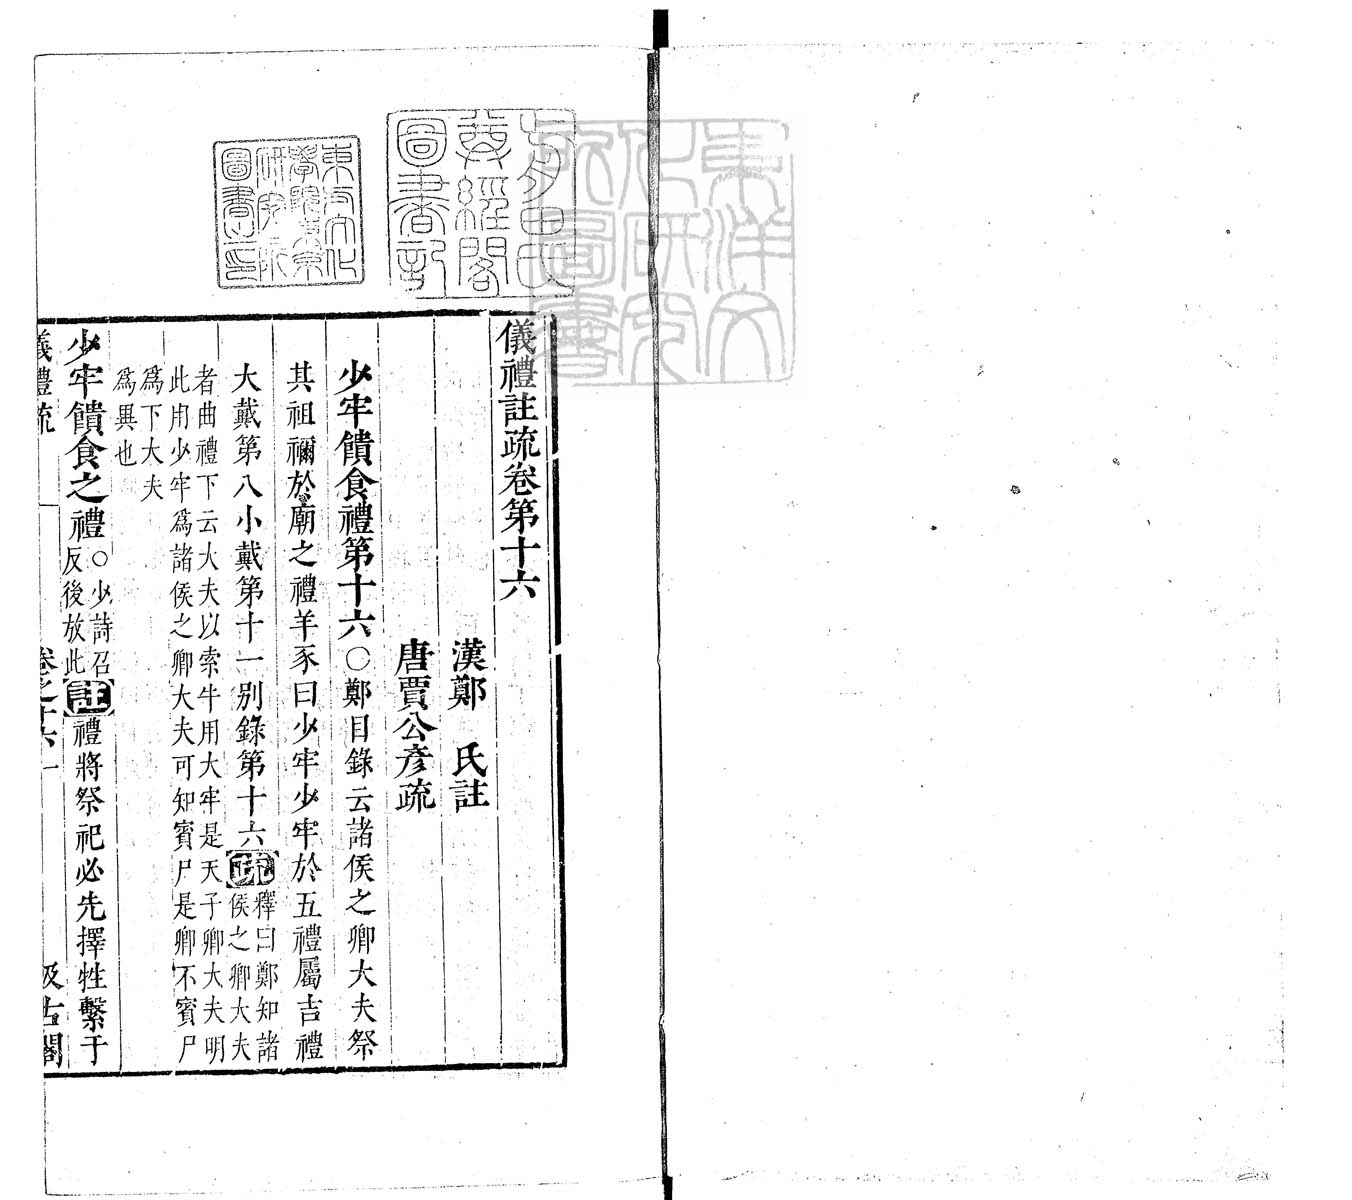 儀禮註疏卷第十六
漢鄭　氏註
唐賈公彥疏
少牢饋食禮第十六○鄭目錄云諸侯之卿大夫祭
其祖禰於廟之禮羊豕曰少牢少牢於五禮屬吉禮
大戴第八小戴第十一別錄第十六疏釋曰鄭知諸
侯之卿大夫
者曲禮下云大夫以索牛用大牢是天子卿大夫明
此用少牢爲諸侯之卿大夫可知賓尸是卿不賓尸
爲下大夫
爲異也
少牢饋食之禮○少詩召
反後放此
註禮將祭祀必先擇牲繫于
儀禮疏
卷之十六
一
汲古閣
東洋文
化研究
所圖書
尊經閣
圖書記
東方文化
學院東京
研究所
圖書之印